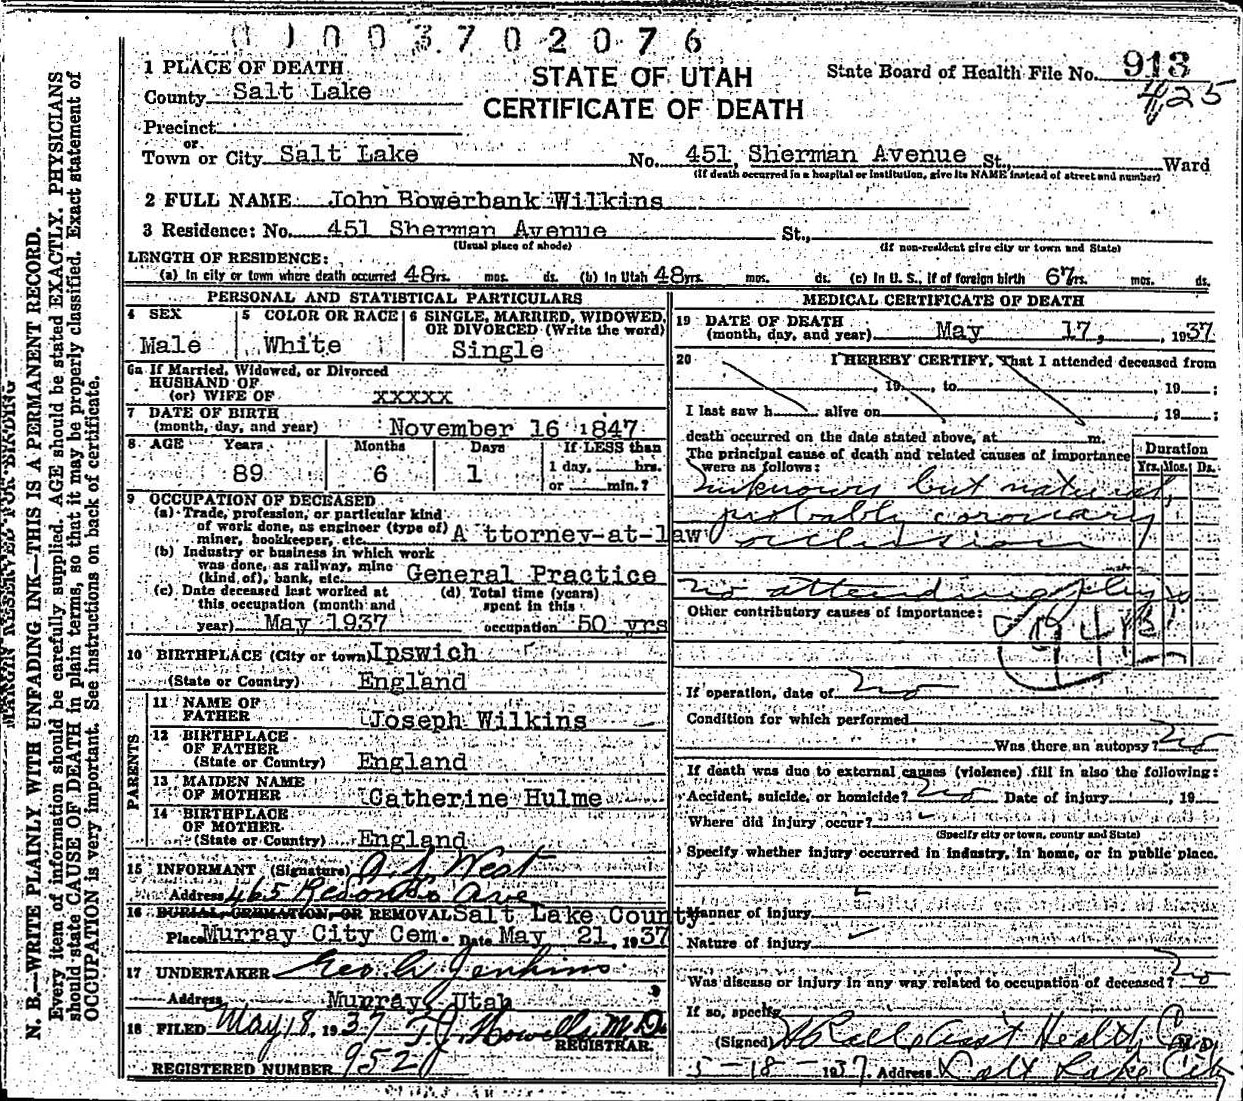 0100370207 6
STATE OF UTAH
CERTIFICATE OF DEATH
State Board of Health File No. 913
425
1 PLACE OF DEATH
County Salt Lake
Precinct
or
Town or City Salt Lake No. 451 Sherman Avenue St., Ward
(If death occurred in a hospital or institution, give its NAME instead of street and number)
2 FULL NAME John Bowerbank Wilkins
3 Residence: No. 451 Sherman Avenue St.,
(Usual place of abode) (If non-resident give city or town and State)
LENGTH OF RESIDENCE:
(a) In city or town where death occurred 48 yrs. mos. ds. (b) In Utah 48 yrs. mos. ds. (c) In U. S., if of foreign birth 67 yrs. mos. ds.
PERSONAL AND STATISTICAL PARTICULARS
4 SEX
Male
5 COLOR OR RACE
White
6 SINGLE, MARRIED, WIDOWED, OR DIVORCED (Write the word)
Single
6a If Married, Widowed, or Divorced
HUSBAND OF
(or) WIFE OF xxxxx
7 DATE OF BIRTH
(month, day, and year) November 16 1847
8 AGE Years Months Days If LESS than
89 6 1 1 day, hrs.
or min.?
9 OCCUPATION OF DECEASED
(a) Trade, profession, or particular kind
of work done, as engineer (type of)
miner, bookkeeper, etc. A ttorney-at-law
(b) Industry or business in which work
was done, as railway, mine
(kind of), bank, etc. General Practice
(c) Date deceased last worked at (d) Total time (years)
this occupation (month and spent in this
year) May 1937 occupation 50 yrs
10 BIRTHPLACE (City or town) Ipswich
(State or Country) England
PARENTS
11 NAME OF
FATHER Joseph Wilkins
12 BIRTHPLACE
OF FATHER
(State or Country) England
13 MAIDEN NAME
OF MOTHER Catherine Hulme
14 BIRTHPLACE
OF MOTHER
(State or Country) England
15 INFORMANT (Signature) A S West
Address 465 Redondo Ave
16 BURIAL, CREMATION, OR REMOVAL Salt Lake County
Place Murray City Cem. Date May 21, 1937
17 UNDERTAKER Geo A Jenkins
Address Murray Utah
18 FILED May 18, 1937 T.J. Howells M.D.
REGISTRAR.
REGISTERED NUMBER 952
MEDICAL CERTIFICATE OF DEATH
19 DATE OF DEATH
(month, day, and year) May 17, , 1937
20 I HEREBY CERTIFY, That I attended deceased from
, 19 , to , 19 ;
I last saw h alive on , 19 ;
death occurred on the date stated above, at m.
The principal cause of death and related causes of importance
were as follows:
Duration
Yrs. Mos. Ds.
unknown but natural,
probably coronary
occlusion
no attending phys
Other contributory causes of importance:
94B
If operation, date of no
Condition for which performed
Was there an autopsy? no
If death was due to external causes (violence) fill in also the following:
Accident, suicide, or homicide? no Date of injury , 19
Where did injury occur?
(Specify city or town, county and State)
Specify whether injury occurred in industry, in home, or in public place.
Manner of injury
Nature of injury
Was disease or injury in any way related to occupation of deceased? no
If so, specify
(Signed) Asst Health Com M.D.
5-18-1937. Address Salt Lake City
MARGIN RESERVED FOR BINDING
N. B.—WRITE PLAINLY WITH UNFADING INK—THIS IS A PERMANENT RECORD.
Every item of information should be carefully supplied. AGE should be stated EXACTLY. PHYSICIANS
should state CAUSE OF DEATH in plain terms, so that it may be properly classified. Exact statement of
OCCUPATION is very important. See instructions on back of certificate.